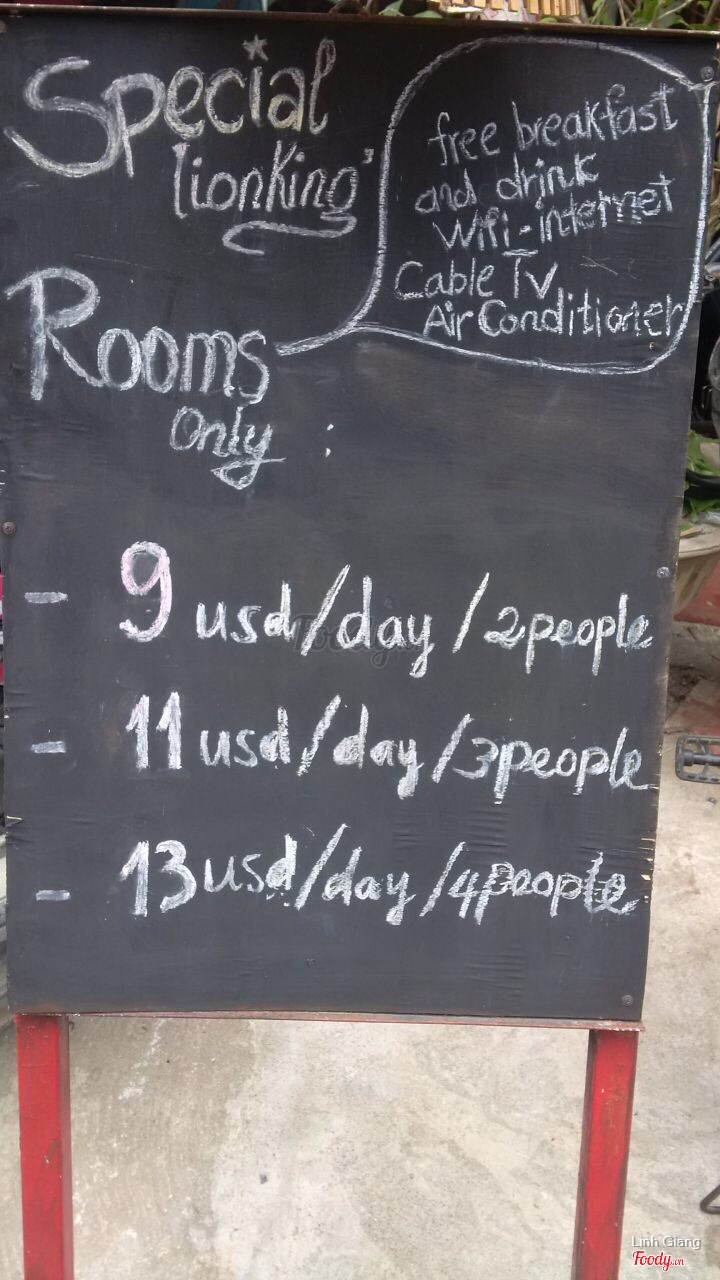 Special
lionKing'
Rooms
Only :
free breakfast
and drink
Wifi - internet
Cable Tv
Air Conditioner
- 9 usd/day/2people
- 11 usd/day/3people
- 13 usd/day/4people
Linh Giang
Foody.vn